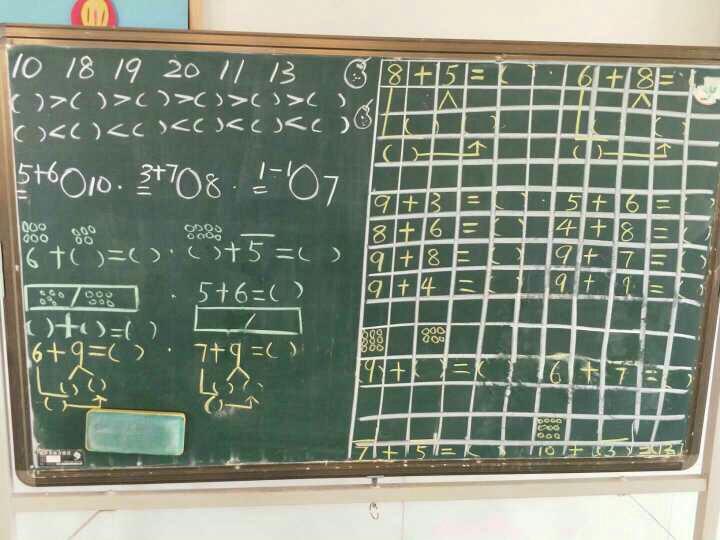 10 18 19 20 11 13
( )>( )>( )>( )>( )>( )
( )<( )<( )<( )<( )<( )
5+6○10. 3+7○8. 1-1○7
6+( )=( ). ( )+5=( )
. 5+6=( )
( )+( )=( )
6+9=( ) 7+9=( )
( )( ) ( )( )
( ) ( )
8+5=( ). 6+8=( )
( ) ( ) ( ) ( )
( ) ( )
9+3=( ). 5+6=( )
8+6=( ) 4+8=( )
9+8=( ) 9+7=( )
9+4=( ) 9+9=( )
9+( )=( ) 6+7=( )
7+5=( ) 10+(3)=13